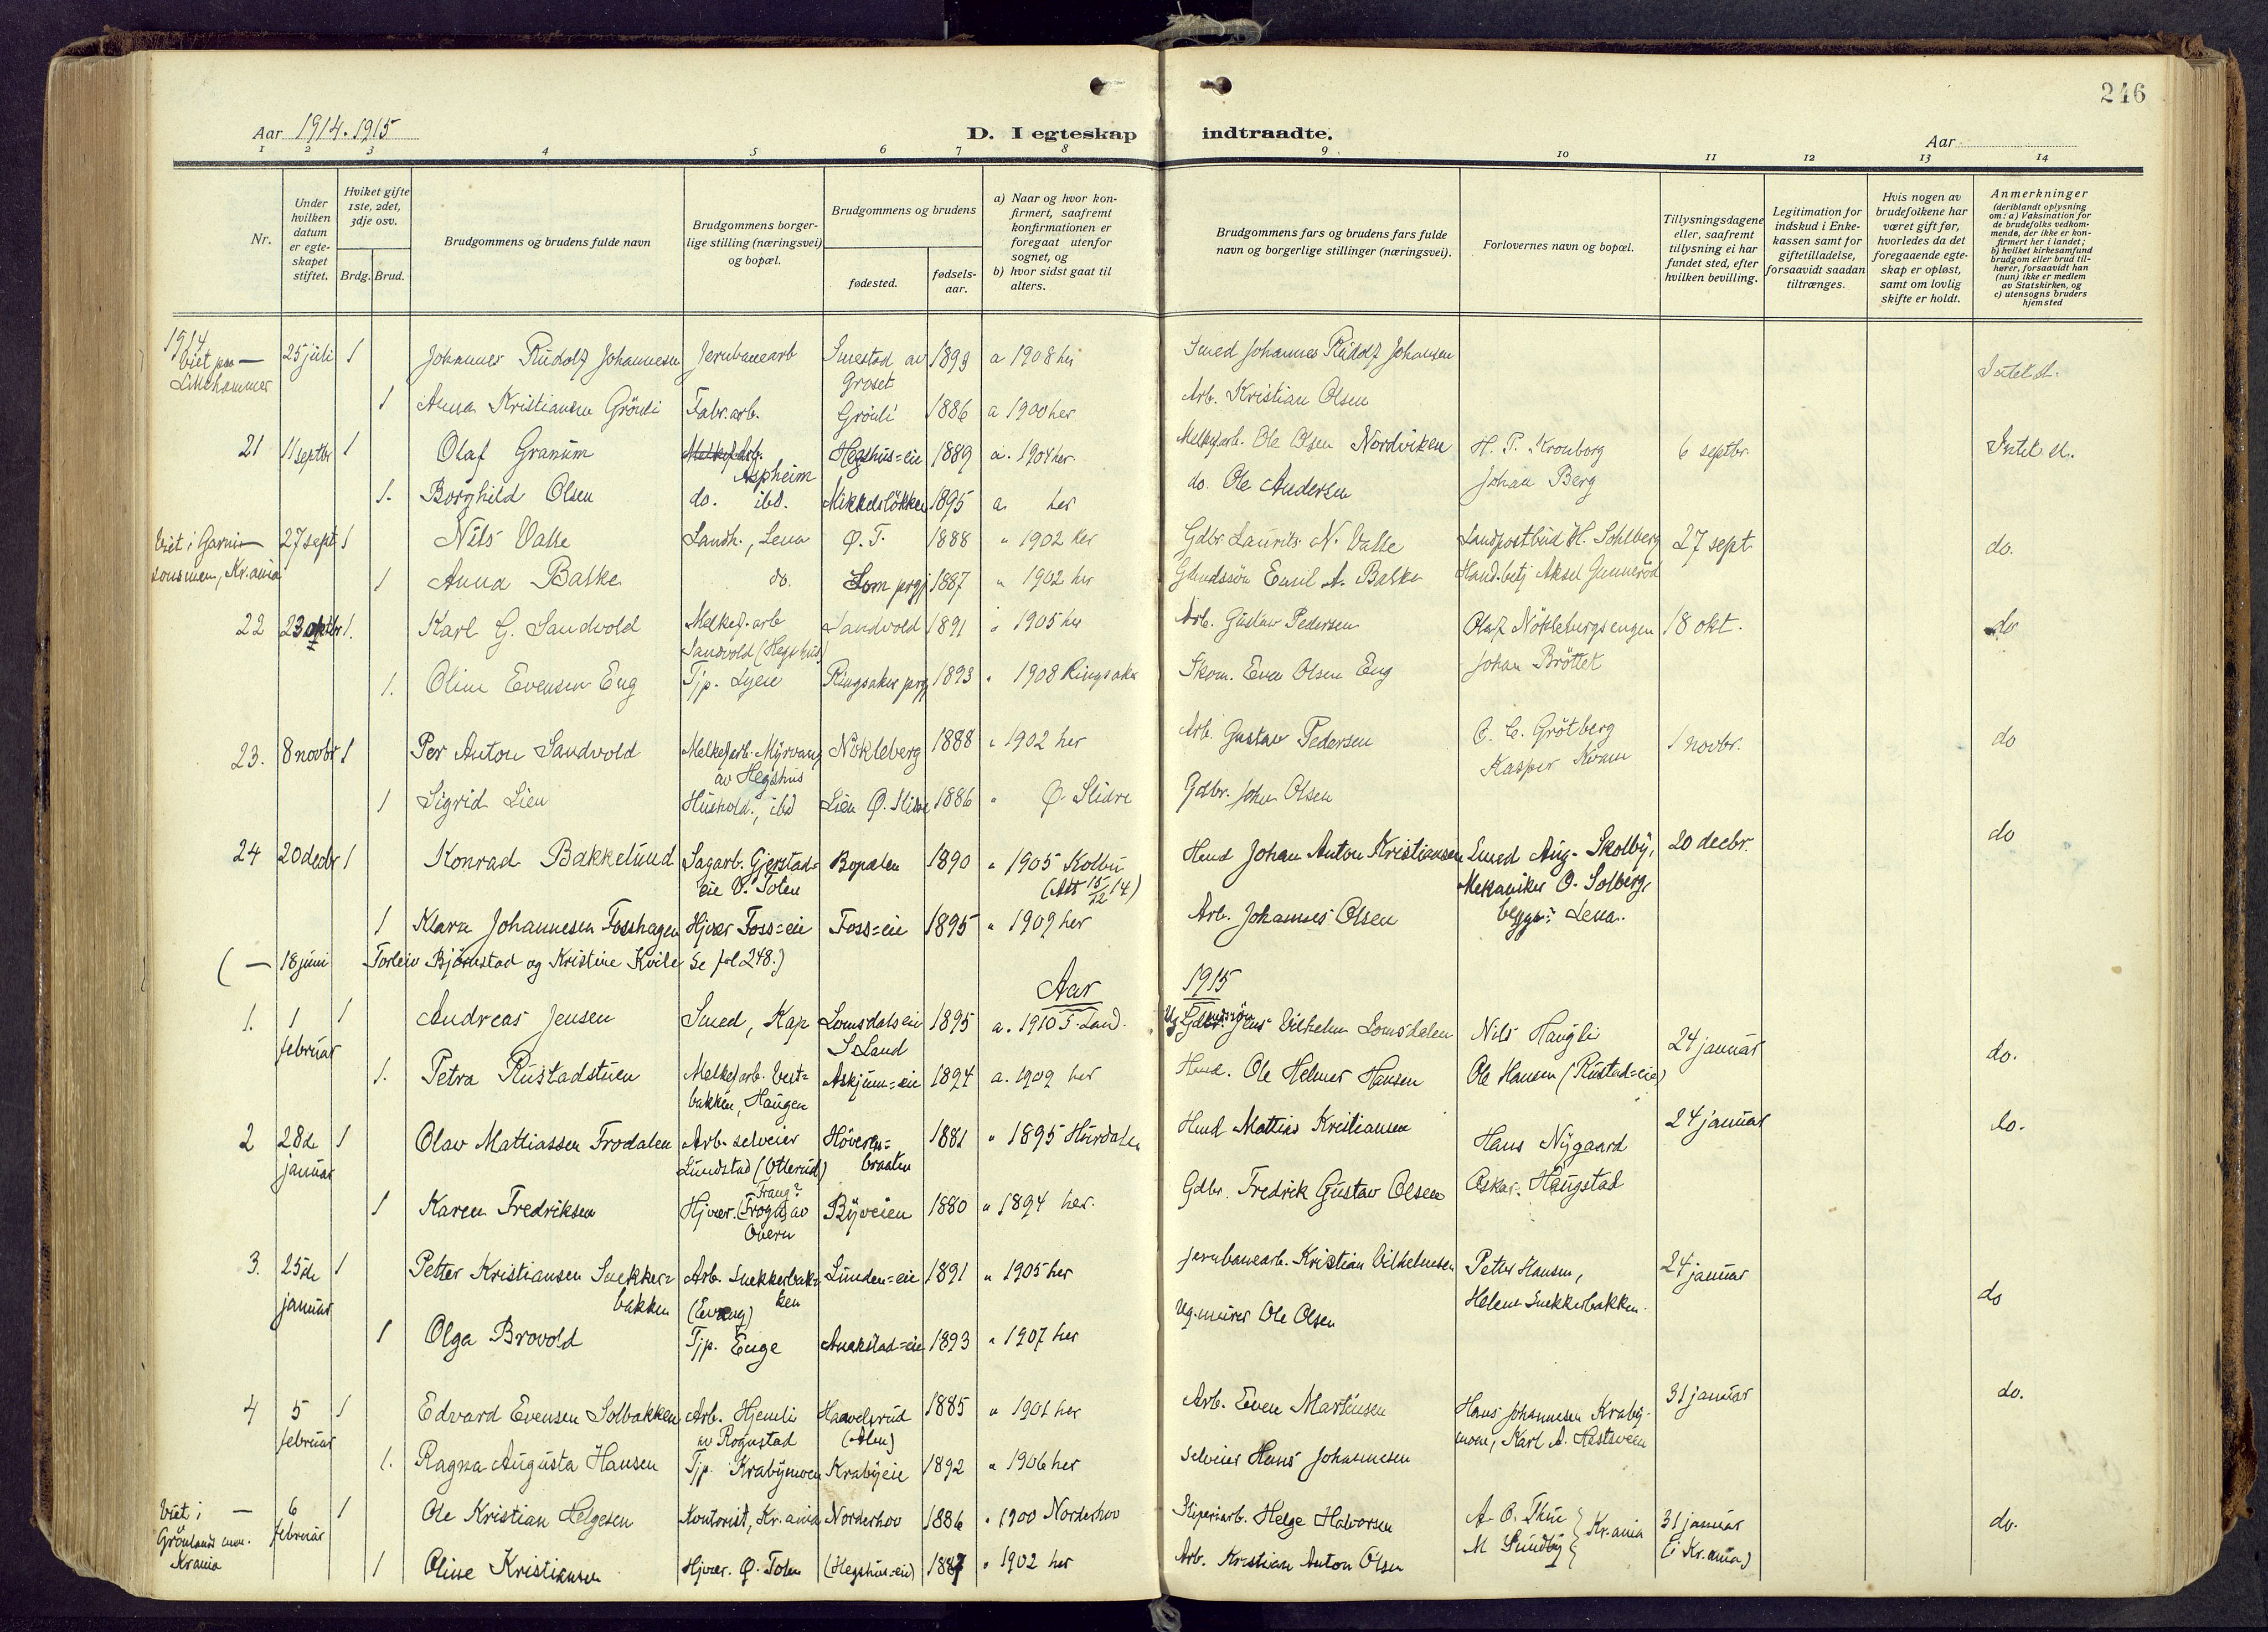 246
Aar 1914. 1915
D. I egteskap indtraadte.
Aar
1 2 3 4 5 6 7 8 9 10 11 12 13 14
Nr.
Under hvilken datum er egteskapet stiftet.
Hviket gifte 1ste, 2det, 3dje osv.
Brdg. Brud.
Brudgommens og brudens fulde navn
Brudgommens borgerlige stilling (næringsvei) og bopæl.
Brudgommens og brudens
fødested.
fødselsaar.
a) Naar og hvor konfirmert, saafremt konfirmationen er foregaat utenfor sognet, og
b) hvor sidst gaat til alters.
Brudgommens fars og brudens fars fulde navn og borgerlige stillinger (næringsvei).
Forlovernes navn og bopæl.
Tillysningsdagene eller, saafremt tillysning ei har fundet sted, efter hvilken bevilling.
Legitimation for indskud i Enkekassen samt for giftetilladelse, forsaavidt saadan tiltrænges.
Hvis nogen av brudefolkene har været gift før, hvorledes da det foregaaende egteskap er opløst, samt om lovlig skifte er holdt.
Anmerkninger
(deriblandt oplysning om: a) Vaksination for de brudefolks vedkommende, der ikke er konfirmert her i landet; b) hvilket kirkesamfund brudgom eller brud tilhører, forsaavidt han (hun) ikke er medlem av Statskirken, og c) utensogns bruders hjemsted
1914
Viet paa — Lillehammer 25 juli 1 Johannes Rudolf Johannesen Jernbanearb Smestad av Groset 1893 a 1908 her Smed Johannes Rudolf Johansen
1 Anna Kristiansen Grönli Fabr.arb. Grönli 1886 a 1900 her Arb. Kristian Olsen
21 11 septbr 1 Olaf Granum Melkef.arb. Aspheim Hegshus=eie 1889 a. 1904 her. Melkef.arb. Ole Olsen Nordviken H. P. Kronborg 6 septbr.
1. Borghild Olsen do. ibd. Mikkelslökken 1895 a. her do. Ole Andersen Johan Berg
Viet i Garnisonsmen, Kr.ania 27 sept 1 Nils Valle Landh., Lena Ø.T. 1888 " 1902 her Gdbr. Laurits N. Valle Landpostbud H. Sohlberg 27 sept do.
1 Anna Balke do. Lom prgj 1887 " 1902 her Emil A. Balke Hand.betj Aksel Gunneröd
22 23 oktbr 1. Karl G. Sandvold Melkef.arb Sandvold (Hegshus) Sandvold 1891 " 1905 her Arb. Gustav Pedersen Olaf Nöklebergsengen 18 okt. do
1. Oline Evensen Eng Tjp. Lyeie Ringsaker prgj 1893 " 1908 Ringsaker Skom. Even Olsen Eng Johan Bröttet
23. 8 novbr 1 Per Anton Sandvold Melkef.arb. Myrvang av Hegshus Nökleberg 1888 " 1902 her Arb. Gustav Pedersen C. C. Grötberg 1 novbr. do
1 Sigrid Lien Hushold., ibd Lien Ø. Slidre 1886 " Ø. Slidre Gdbr. John Olsen Kasper Kvam
24 20 decbr 1 Konrad Bakkelund Sagarb. Gjerstad=eie V. Toten 1890 " 1905 Kolbu (Att 15/12 14) Hmd Johan Anton Kristiansen Smed Aug. Skolby, 20 decbr. do
Mekaniker O. Solberg, begge: Lena.
1 Klara Johannesen Fosshagen Hjvær Foss=eie Foss=eie 1895 " 1909 her Arb. Johannes Olsen
( — 18 juni Torleiv Bjørnstad og Kristine Kvile se fol 248.)
Aar 1915
1. 1 februar 1 Andreas Jensen Smed, Kap Lomsdalseie S. Land 1895 a. 1910 S. Land. Jens Vilhelm Lomsdalen Nils Haugli 24 januar
1. Petra Rustadstuen Melkef.arb. Vestbakken, Haugen Askjum=eie 1894 a. 1909 her Hmd. Ole Helmer Hansen Ole Hansen (Rustad=eie) do.
2 28de januar 1 Olav Mattiassen Frodalen Arb. selveier Lundstad (Otterud) Höveren=braaten 1881 " 1895 Hurdalen Hmd Mattias Kristiansen Hans Nygaard 24 januar do.
1 Karen Fredriksen Hjvær. (Frogn) av Overn Frang? Byveien 1880 " 1894 her. Gdbr. Fredrik Gustav Olsen Oskar Haugstad
3. 25de januar 1 Petter Kristiansen Snekkerbakken Arb. Snekkerbakken (Evang) Lunden=eie 1891 " 1905 her Jernbanearb. Kristian Vilhelmsen Petter Hansen, 24 januar
1 Olga Brovold Tjp. Enge Anakstad=eie 1893 " 1907 her Vg.murer Ole Olsen Helene Snekkerbakken. do
4 5 februar 1 Edvard Evensen Solbakken Arb. Hjemli av Rognstad Haavelsrud (Alm) 1885 " 1901 her Arb. Even Martinsen Hans Johannesen Krabymoen, Karl A. Hestsveen 31 januar do.
1. Ragna Augusta Hansen Tjp. Krabymoen Krabyeie 1892 " 1906 her Selveier Hans Johannesen
Viet i — Grönlands men. Krania 6 februar 1 Ole Kristian Helgesen Kontorist, Kr.ania Norderhov 1886 " 1900 Norderhov Helge Halvorsen A. O. Thue M Sundby Kr.ania 31 januar (i Kr.ania) do.
1 Oline Kristiansen Hjvær. Ø. Toten (Hegshus=eie) 1887 " 1902 her Arb. Kristian Anton Olsen